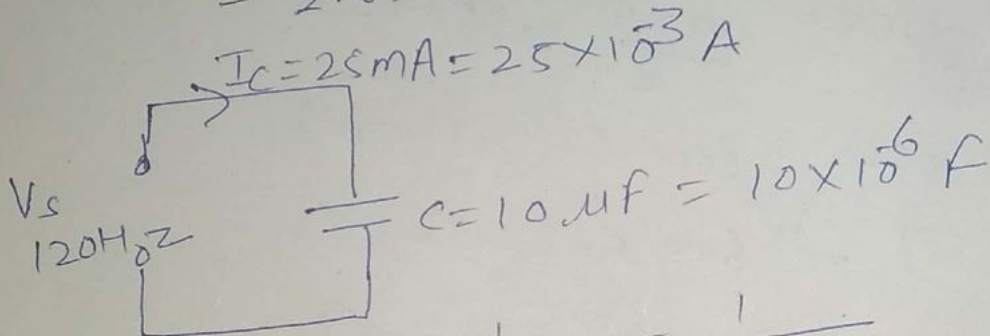 I_C = 25mA = 25×10⁻³ A
Vs
120Hz
C = 10 μF = 10×10⁻⁶ F
1